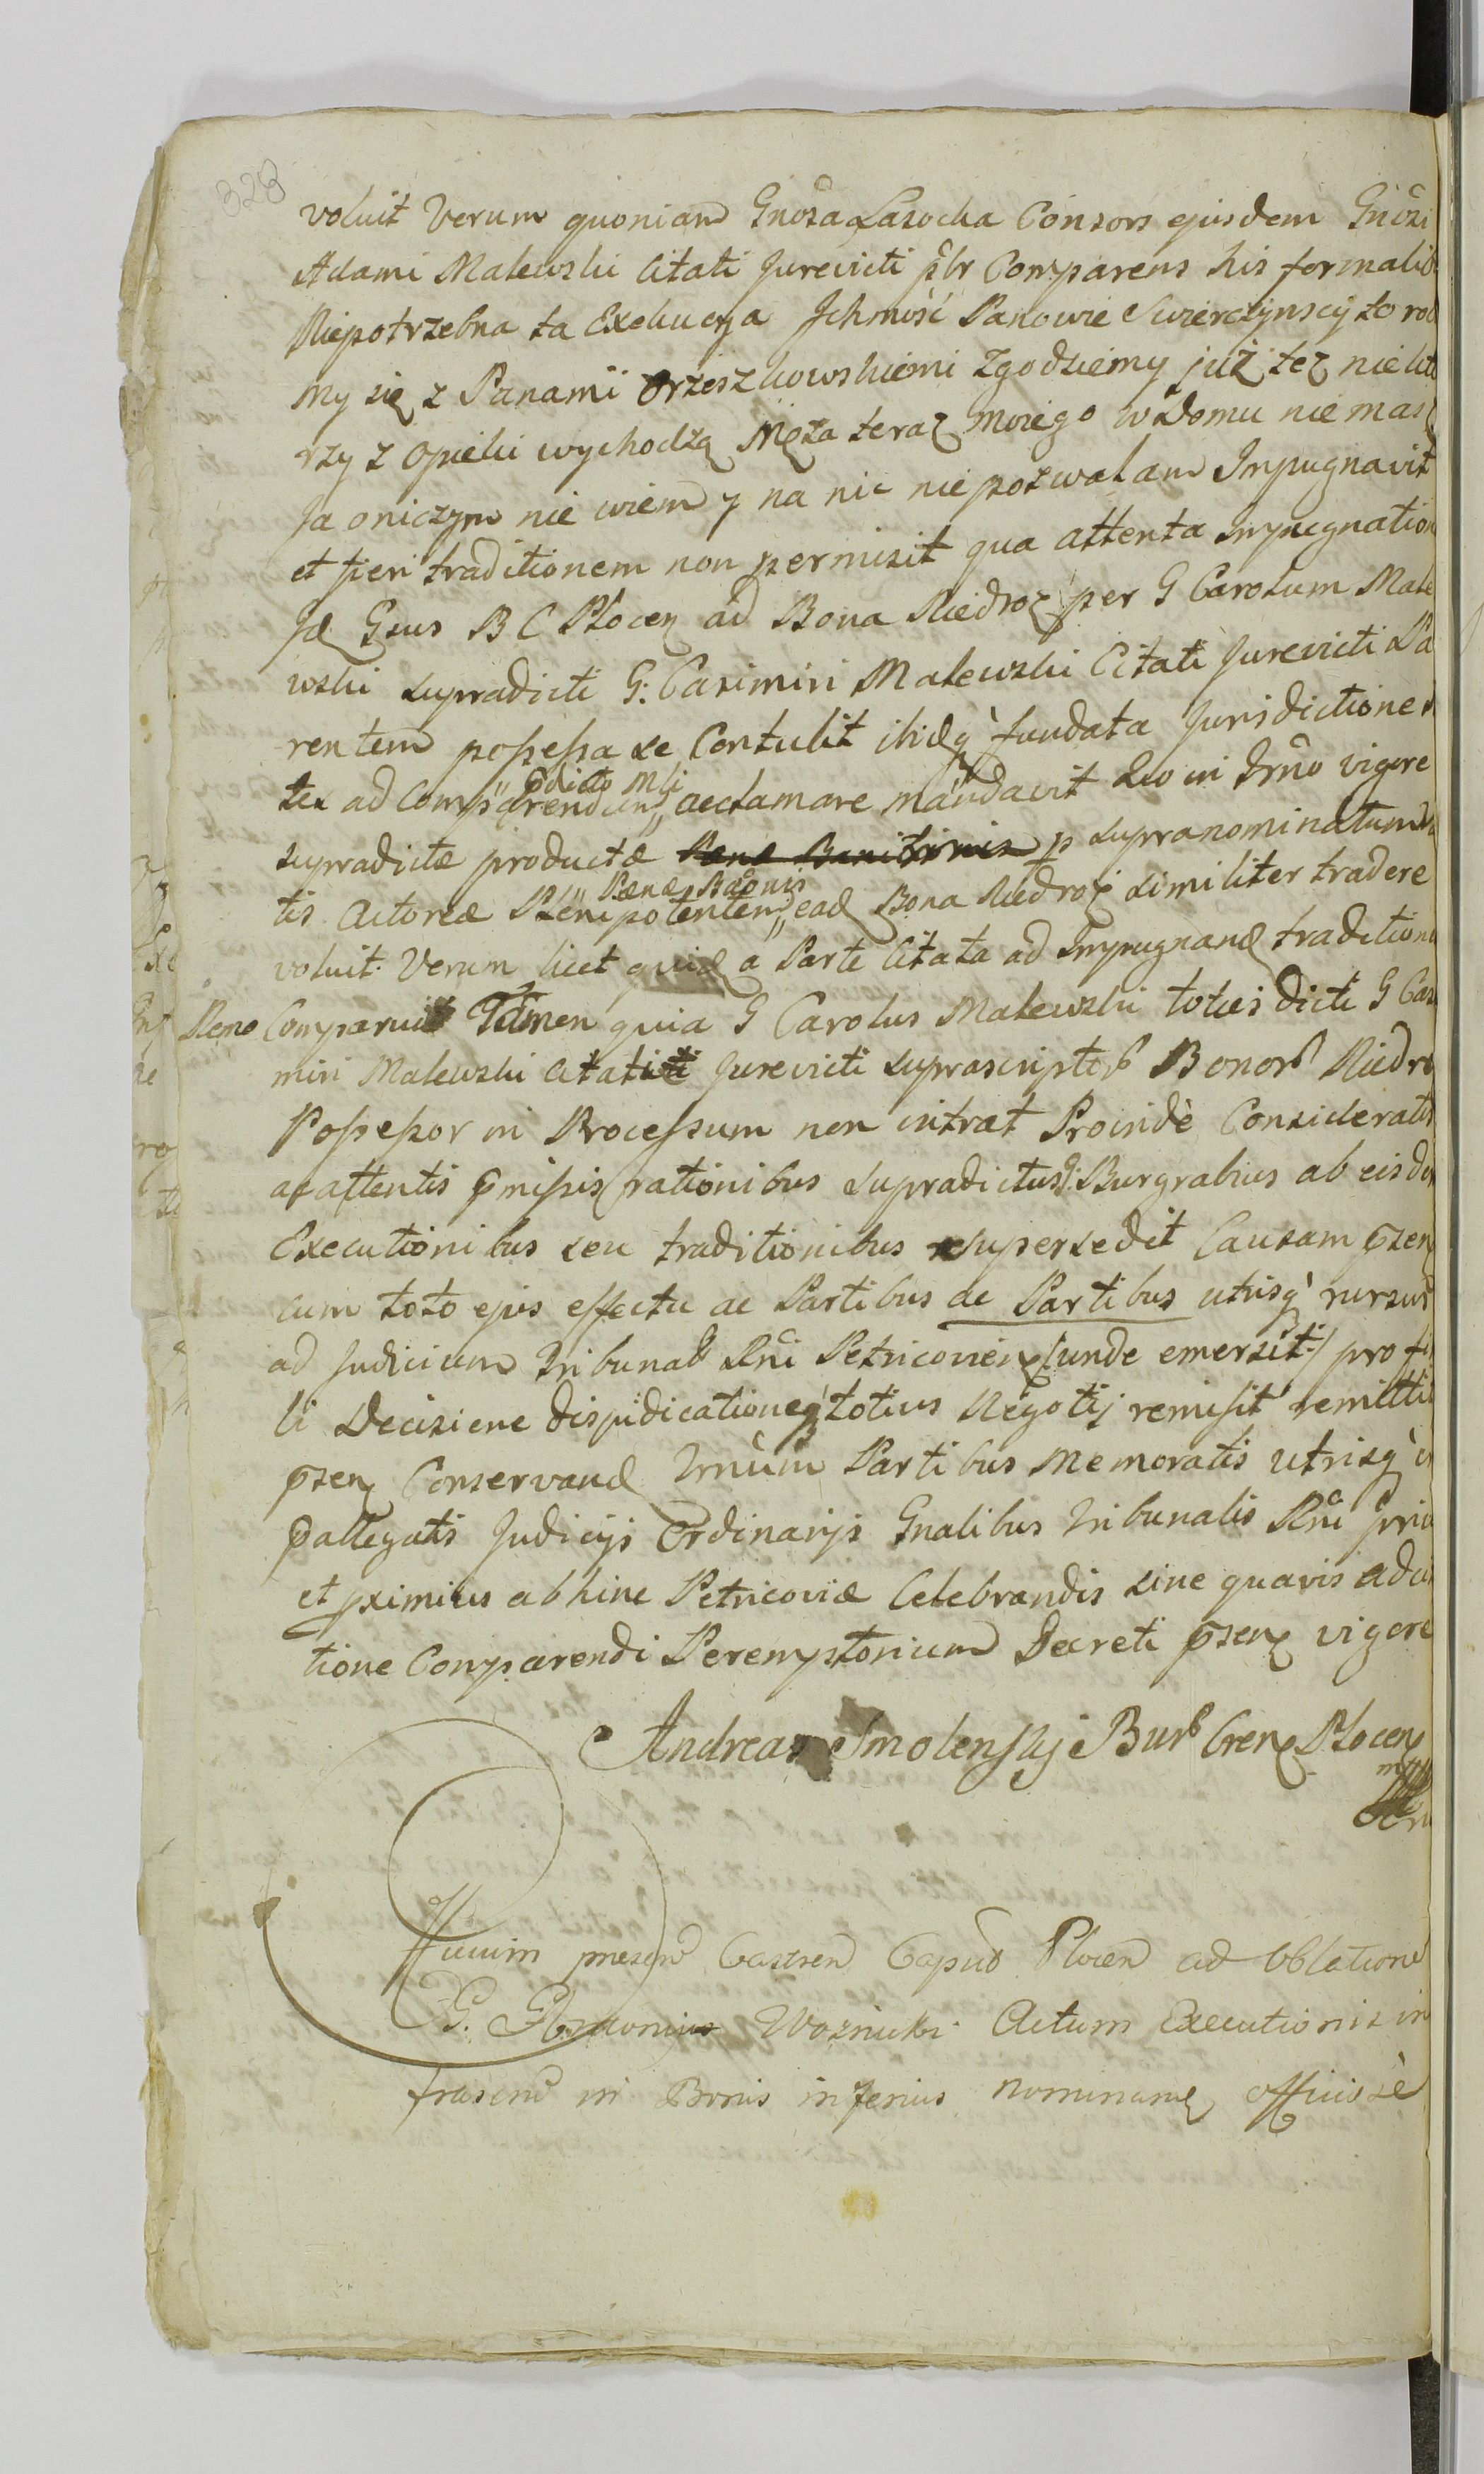 328
voluit Verum quoniam Gnosa Lasocka Consors ejusdem Gnosi
Adami Malewski Citati Jurevicti pbr Comparens his formalib
Niepotrzebna ta Exekucya Jchmość Panowie Swierczynscy to rob
my się z Panami Orzeszkowskiemi zgodziemy już też nie
rzy z Opieki wychodzą Męża teraz moiego w Domu nie masz
Ja oniczym nie wiem y na nic nie pozwalam Impugnavit
et fieri traditionem non permisit qua attenta Impugnation
Jd Gsus B C Plocen ad Bona Niedroz per G Carolum Male
wski supradicti G: Casimiri Malewski Citati Jurevicti Pa
rentem possessa se Contulit ibidq fundata Jurisdictione
edicto Mli
tes ad Comparendum acclamare mandavit Quo in Trno vigore
supradictæ productæ Pænæ Banitionis p supranominatum
Pænæ Baonis
tis Actoreæ Plenipotentem ead Bona Niedroz similiter tradere
voluit. Verum licet quid a Parte Citata ad Impugnand traditione
Nemo Comparuit Tamen quia G Carolus Malewski toties dicti G Casi
miri Malewski Citati Jurevicti suprascriptor Bonor Niedro
Possessor in Processum non intrat Proinde Consideratis
ac attentis pmissis rationibus supradictus G: Burgrabius ab eisdem
Executionibus seu traditionibus supersedit Causam psen
cum toto ejus effectu ac Partibus de Partibus utrisq rursum
ad Judicium Tribunal Rni Petricovien /:unde emersit:/ pro fi
li Decisione disjudicationeq totius Negotij remisit remittit
psen Conservand Trnum Partibus Memoratis utrisq in
pallegatis Judicijs Ordinarijs Gnalibus Tribunalis Rni
et pximius abhinc Petricoviæ Celebrandis sine quavis adci
tione Comparendi Peremptorium Decreti psen vigore
Andreas Smolenskj Bur Cren Plocen
mpp
Officium presens Castren Capitd Plocen ad Oblatione
G. Antonijus Woznicki Actum Executionis in
frascrip in Bonis inferius nominand officiose